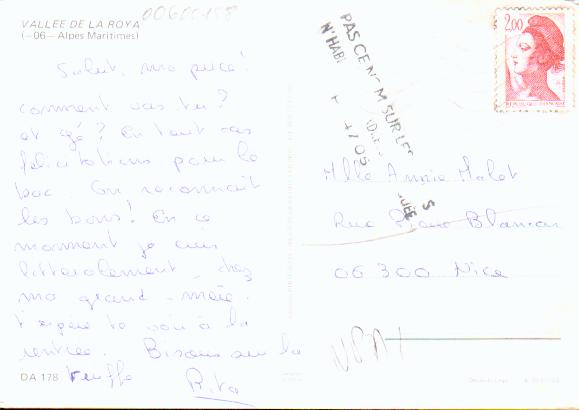 00600158
VALLEE DE LA ROYA
(-06- Alpes Maritimes)
Salut, ma puce!
comment vas tu?
et gé? En tout cas
felicitations pour le
bac. On reconnait
les bons! En ce
momment je suis
litteralement chez
ma grand-mère.
J'espère te voir à la
rentrée. Bisous sur la
truffe Rita
DA 178
2,00
REPUBLIQUE FRANÇAISE
PAS CE NOM SUR LES
N'HABI
Mlle Annie Malet
Rue Blancas
06 300 Nice